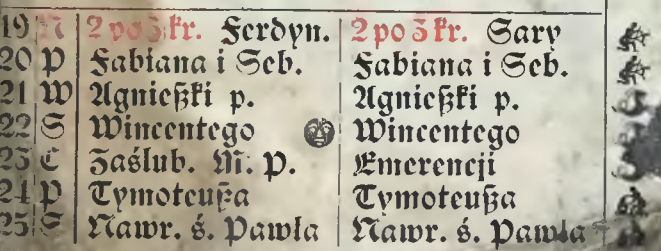 19 N 2 po 3 kr. Ferdyn. 2 po 3 kr. Sary
20 P Fabiana i Seb. Fabiana i Seb.
21 W Agnieszki p. Agnieszki p.
22 S Wincentego Wincentego
23 C Zaślub. M. P. Emerencji
24 P Tymoteusza Tymoteusza
25 S Nawr. ś. Pawła Nawr. ś. Pawła